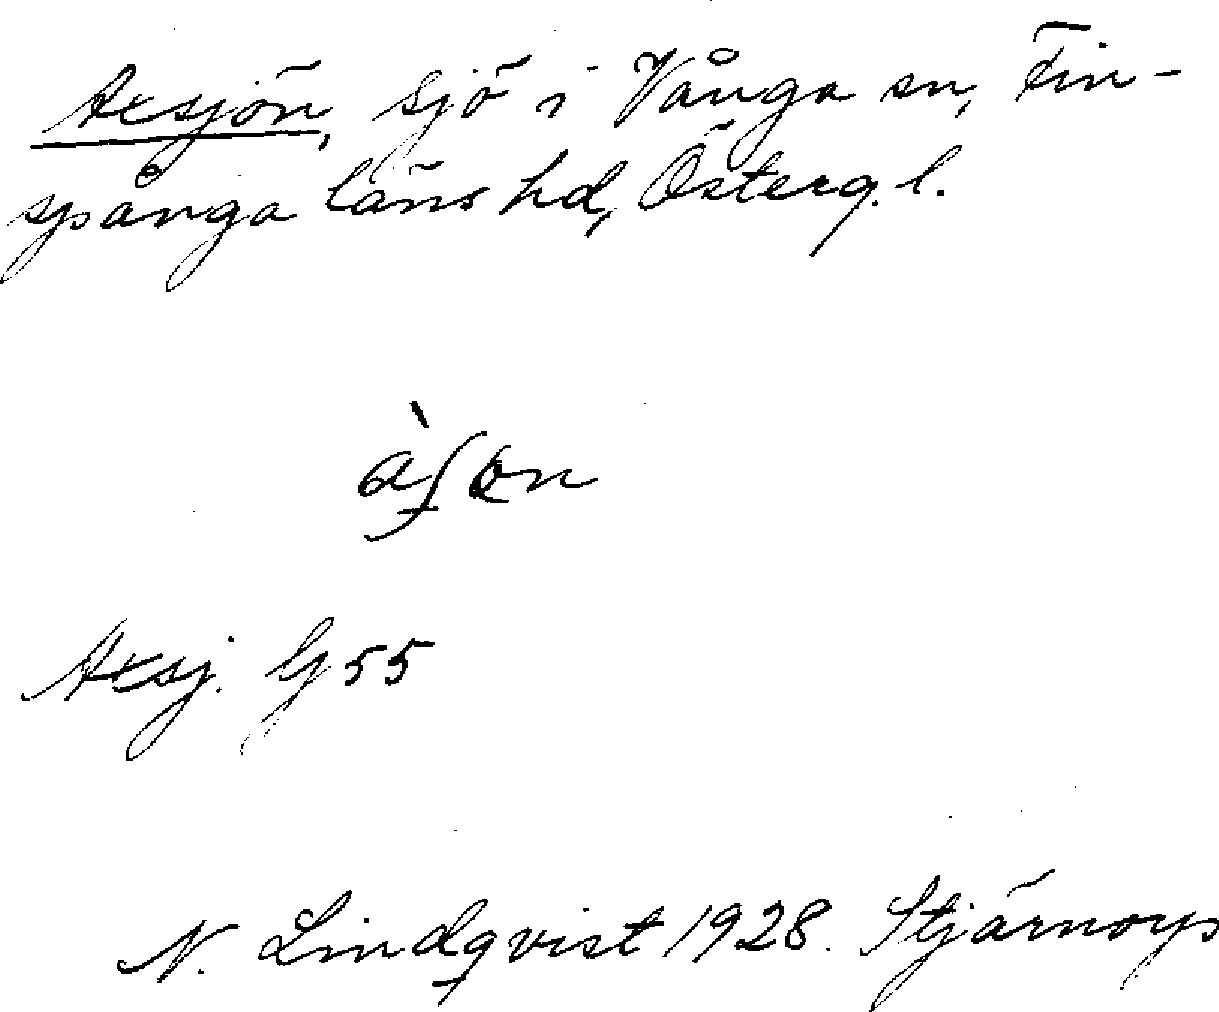 Axsjön, sjö i Vånga sn, Fin-
spånga läns hd, Österg. l.
Axsj. G 55
N. Lindqvist 1928. Stjärnorps